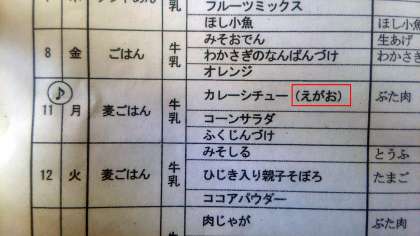 牛乳 フルーツミックス
ほし小魚 ほし小魚
8 金 ごはん 牛乳 みそおでん 生あげ
わかさぎのなんばんづけ わかさぎ
オレンジ
♪ 11 月 麦ごはん 牛乳 カレーシチュー (えがお) ぶた肉
コーンサラダ
ふくじんづけ
12 火 麦ごはん 牛乳 みそしる とうふ
ひじき入り親子そぼろ たまご
ココアパウダー
肉じゃが ぶた肉